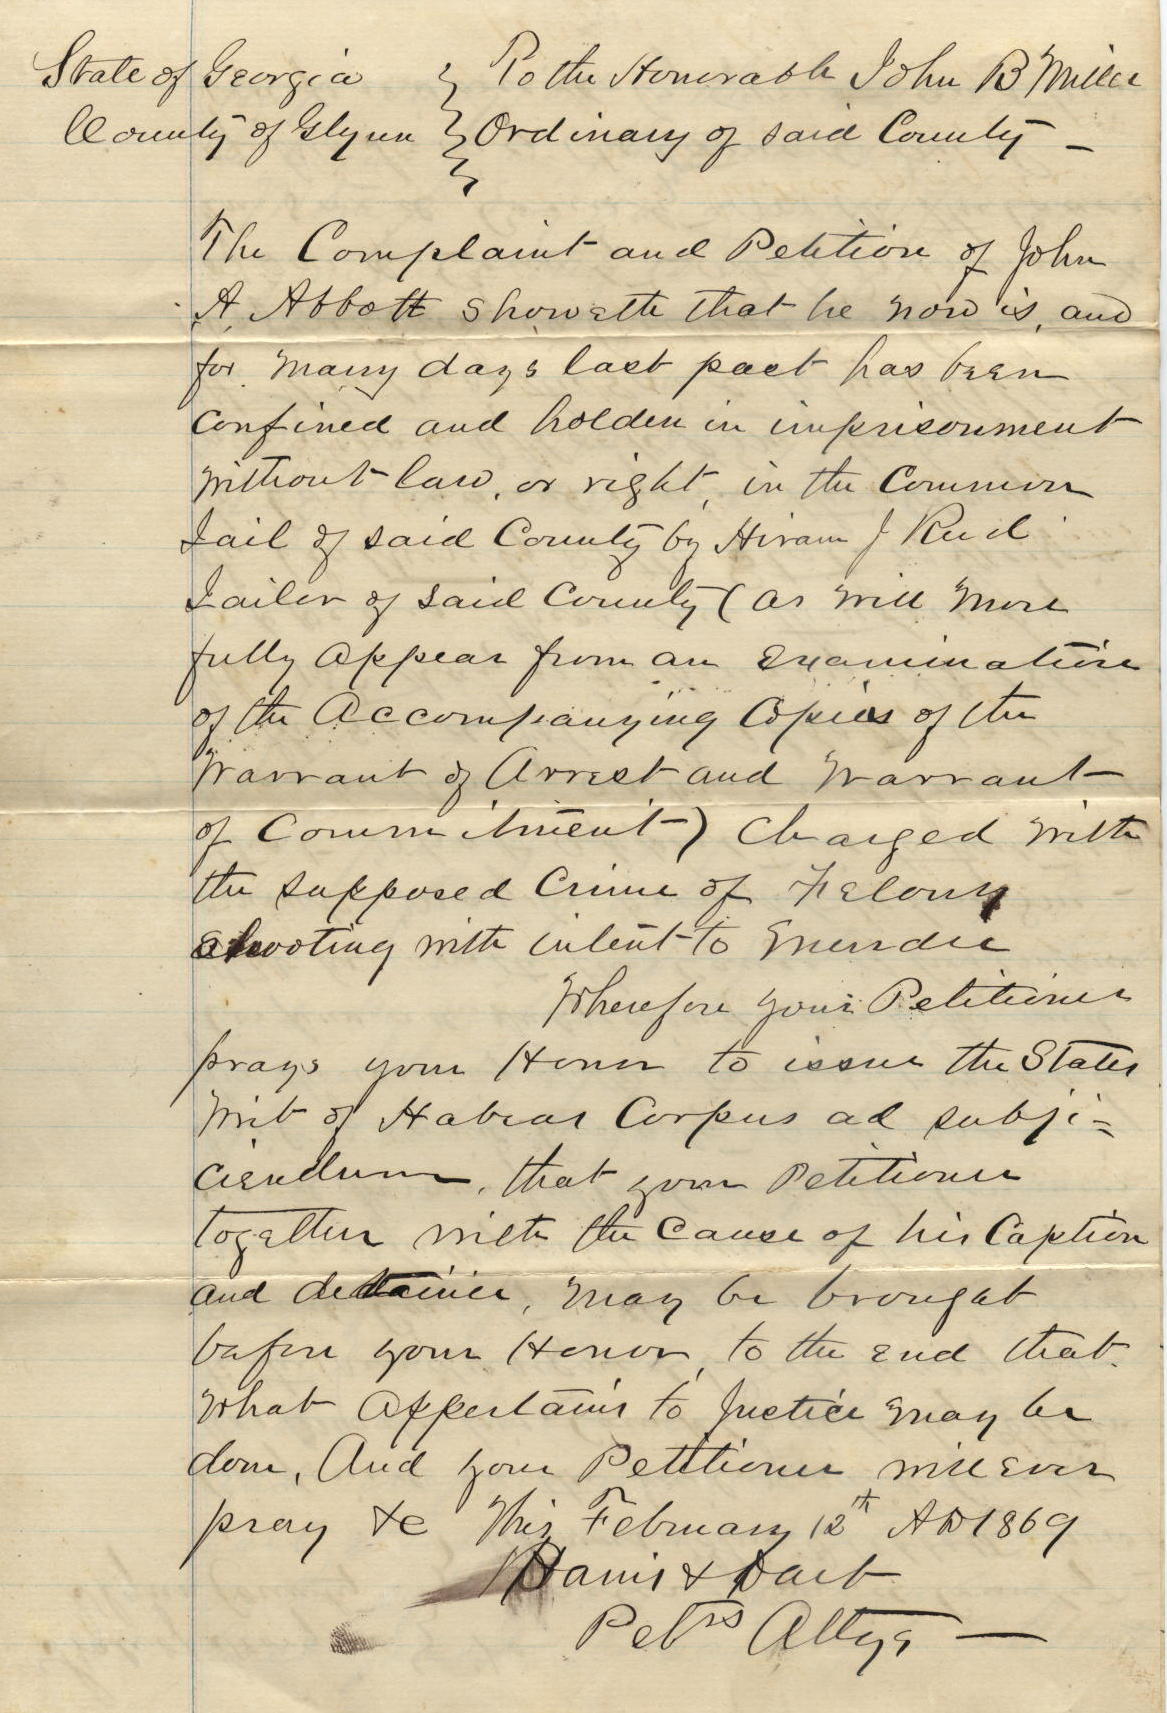 State of Georgia } To the Honorable John B Miller
County of Glynn } Ordinary of said County —
The Complaint and Petition of John
A. Abbott showeth that he now is, and
for many days last past has been
confined and holden in imprisonment
without law, or right, in the Common
Jail of said County by Hiram J
Jailer of said County (as will more
fully appear from an examination
of the Accompanying Copies of the
Warrant of Arrest and Warrant
of Commitment) charged with
the supposed Crime of Felony
shooting with intent to murder
Wherefore your Petitioner
prays your Honor to issue the States
Writ of Habeas Corpus ad subji=
ciendum, that your Petitioner
together with the Cause of his Caption
and detainer, may be brought
before your Honor, to the end that
what appertains to Justice may be
done, And your Petitioner will ever
pray &c This February 12th AD 1869
Harris & Dart
Petrs Attys —